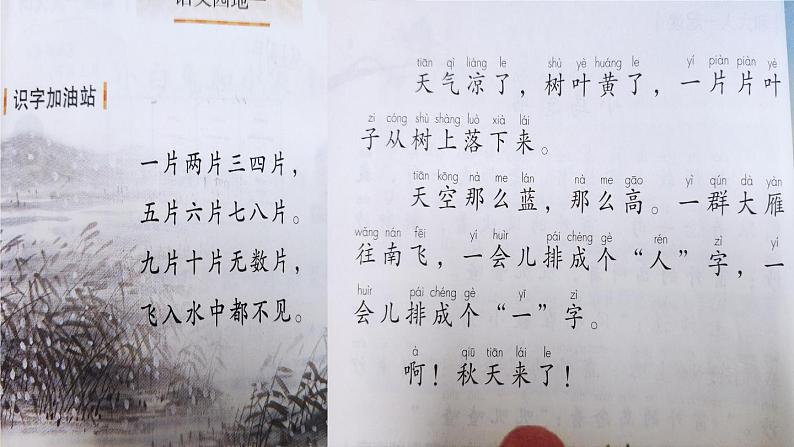 语文园地一
识字加油站
一片两片三四片，
五片六片七八片。
九片十片无数片，
飞入水中都不见。
tiān qì liáng le shù yè huáng le yí piàn piàn yè
天气凉了，树叶黄了，一片片叶
zi cóng shù shàng luò xià lái
子从树上落下来。
tiān kōng nà me lán nà me gāo yì qún dà yàn
天空那么蓝，那么高。一群大雁
wǎng nán fēi yí huìr pái chéng gè rén zì yí
往南飞，一会儿排成个“人”字，一
huìr pái chéng gè yī zì
会儿排成个“一”字。
à qiū tiān lái le
啊！秋天来了！